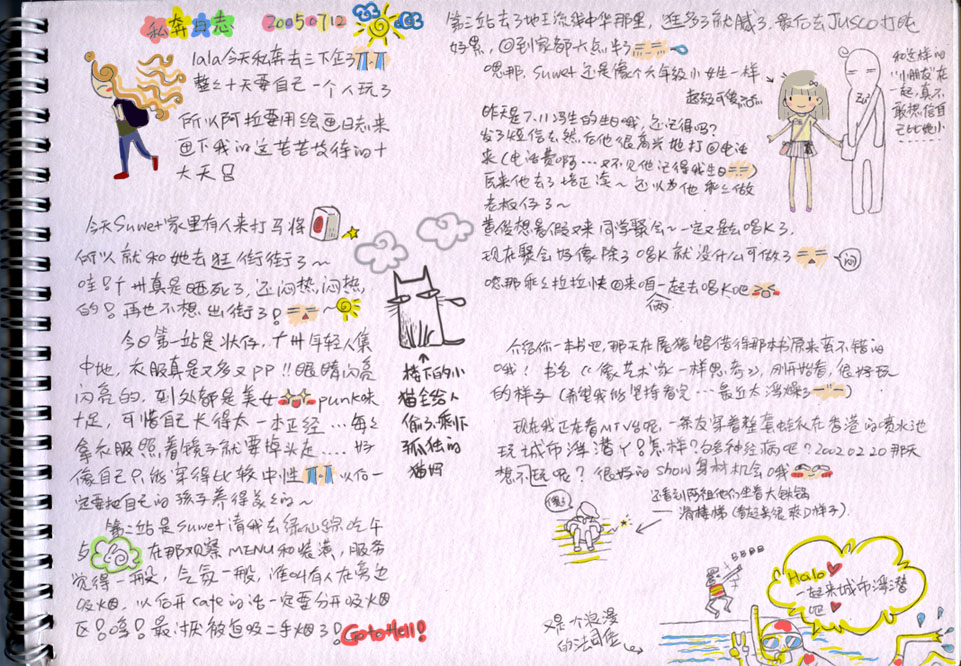 私奔日志 20050712
lala今天私奔去三下住了
整整十天要自己一个人玩了
所以阿拉要用绘画日志来
画下我的这苦苦等待的十
大天!
今天Suwet家里有人来打马将
所以就和她去逛街街了~
哇!广州真是晒死了,还闷热,闷热
的!再也不想出街了!
今日第一站是状仔,广州年轻人集
中地,衣服真是又多又PP!!眼睛闪亮
闪亮的,到处都是美女 punk味
十足,可惜自己长得太一本正经...每每
拿衣服照着镜子就要掉头走....好
像自己只能穿得比较中性 以后一
定要把自己的孩子养得美美的~
第二站是suwet请我去绿仙踪吃午
在那观察MENU和装潢,服务
觉得一般,气氛一般,谁叫有人在旁边
吸烟,以后开cafe的话一定要分开吸烟
区!哼!最讨厌被迫吸二手烟了!Go to Hell!
楼下的小
猫全给人
偷了,剩下
孤独的
猫妈
第三站去了地王流行中华那里,逛多了就腻了,最后去JUSCO打吨
好累,回到家都六点半了
嗯那,suwet还是像个六年级小女生一样
超级可爱
和这样的
"小朋友"在
一起,真不
敢想信自
己比她小
昨天是7.11冯生的生日哦,还记得吗?
发了短信去,然后他很高兴地打回电话
来(电话费啊...又不见他记得我生日)
后来他去了培正读~还以为他乖乖做
老板仔了~
黄俊想暑假又来同学聚会~一定又是去唱K了.
现在聚会好像除了唱K就没什么可做了
闷
嗯那乖乖拉拉快回来咱一起去唱K吧
俩
介绍你一本书吧,那天在尾猪馆借得那本书原来蛮不错的
哦!书名《像艺术家一样思考》,刚开始看,很好玩
的样子(希望我能坚持看完...最近太浮躁了)
现在我正在看MTV呢,一条友穿着整套蛙衣在香港的喷水池
玩城市浮潜丫!怎样?够多神经病吧?20020220那天
想不玩呢?很好的show身材机会哦
还看到阿祖他们坐着大铁锅
滑楼梯(看起来很爽D样子)
Halo
一起来城市浮潜
吧
又是个浪漫
的法国佳